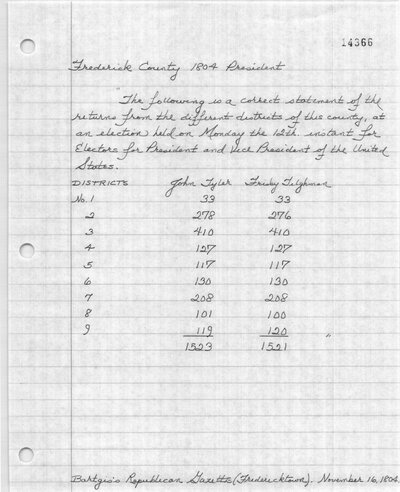 14366
Frederick County 1804 President
"The following is a correct statement of the
returns from the different districts of this county, at
an election held on Monday the 12th. instant for
Electors for President and Vice President of the United
States.
DISTRICTS John Tyler Frisby Tilghman
No. 1 33 33
2 278 276
3 410 410
4 127 127
5 117 117
6 130 130
7 208 208
8 101 100
9 119 120 "
1523 1521
Bartgis's Republican Gazette (Fredericktown). November 16, 1804